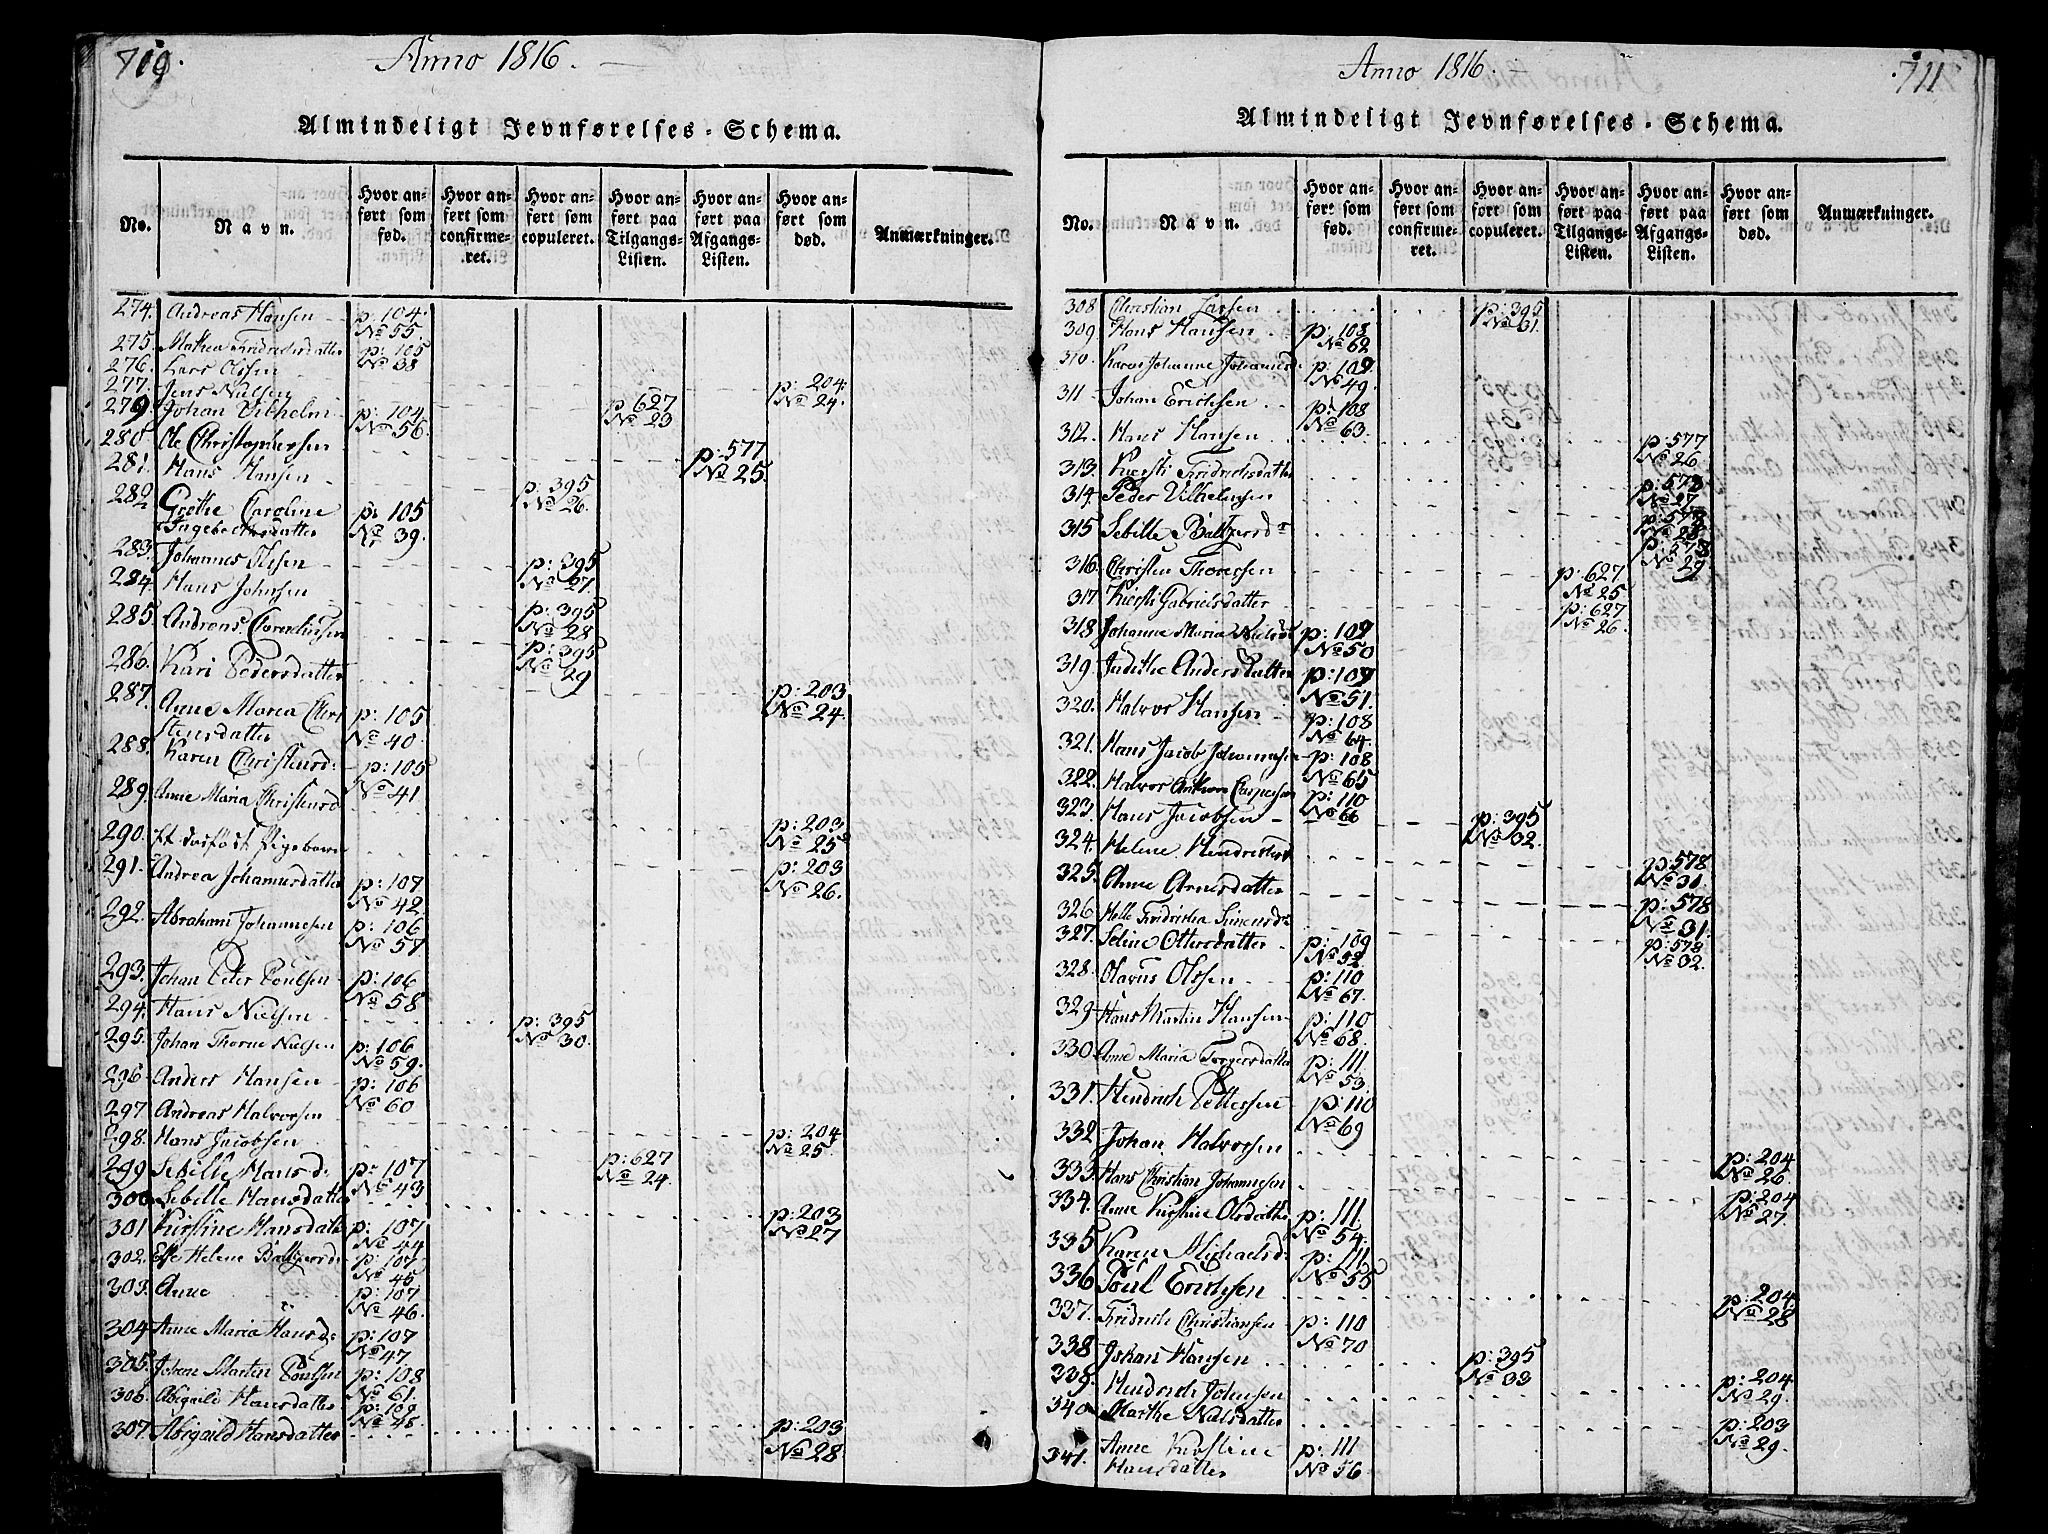 719.
Anno 1816.
Almindeligt Jevnførelses-Schema.
No. Navn. Hvor anført som fød. Hvor anført som confirmeret. Hvor anført som copuleret. Hvor anført paa Tilgangs-Listen. Hvor anført paa Afgangs-Listen. Hvor anført som død. Anmærkninger.
274. Andreas Hansen p: 104. No 55
275. Mathea Fridrichsdatter p: 105 No 38
276. Lars Olssen
277. Jens Nielsen p: 204. No 24.
279. Johan Vilhelm p: 104 No 56. p 627 No 23
280. Ole Christophersen p: 577 No 25.
281. Hans Hansen p: 395 No 26.
282 Grethe Caroline
Ingebrethsdatter p: 105 No 39.
283. Johannes Olsen p: 395 No 27.
284. Hans Johnsen p: 395 No 28
285. Andreas Cornelinsen p: 395 No 29
286. Kari Pedersdatter p: 203 No 24.
287. Anne Maria Chri
stensdatter p: 105 No 40.
288. Karen Christensd: p: 105 No 41.
289. Anne Maria Christensd p: 203 No 25
290. Et dødfødt Pigebarn p: 203 No 26.
291. Andrea Johannesdatter p: 107 No 42
292. Abraham Johannesen p: 106 No 57
293. Johan Peter Poulsen p: 106 No 58
294. Hans Nielsen p: 395 No 30.
295. Johan Thorne Nielsen p: 106 No 59.
296 Anders Hansen p: 106 No 60
297 Andreas Halvorsen p: 204 No 25
298. Hans Jacobsen p: 627 No 24.
299 Sebille Hansd: p: 107 No 43
300 Sebelle Hansdatter p: 203 No 27
301 Kirstine Hansdatter p: 107 No 44
302. Else Helene Baltzersd: p: 107 No 45
303. Anne p: 107 No 46.
304 Anne Maria Hansd: p: 107 No 47.
305. Johan Martin Poulsen p: 108 No 61.
306. Abigaild Hansdatter p: 109 No 48.
307 Abigaild Hansdatter p: 203 No 28
Anno 1816.
711
Almindeligt Jevnførelses-Schema.
No. Navn. Hvor anført som fød. Hvor anført som confirmeret. Hvor anført som copuleret. Hvor anført paa Tilgangs-Listen. Hvor anført paa Afgangs-Listen. Hvor anført som død. Anmærkninger.
308 Christian Larsen p: 395 No 31.
309. Hans Hansen p: 108 No 62
310. Karen Johanne Johannesd. p: 109 No 49.
311 Johan Erichsen p: 108 No 63.
312. Hans Hansen p: 577 No 26.
313. Kiersti Fridrichsdatter p: 578 No 27
314. Peder Vilhelmsen p: 578 No 28
315 Sebille Baltzersdr p: 578 No 29
316. Christen Thoresen p: 627 No 25
317 Kiersti Gabrielsdatter p: 627 No 26.
318. Johanne Maria Nielsd p: 109 No 50
319. Judithe Andersdatter p: 109 No 51.
320. Halvor Hansen p: 108 No 64.
321. Hans Jacob Johannesen p: 108 No 65
322. Halvor Anthon Caspersen p: 110 No 66
323. Hans Jacobsen p: 395 No 32.
324. Helene Hendrichsd p: 578 No 30.
325. Anne Arnesdatter p: 578 No 31.
326. Helle Fridricha Simensdr p: 578 No 32.
327. Seline Ottersdatter p: 109 No 52
328. Olavus Olssen p: 110 No 67.
329 Hans Martin Hansen p: 110 No 68.
330. Anne Maria Torgersdatter p: 111 No 53.
331. Hendrich Pettersen p: 110 No 69
332 Johan Halvorsen p: 204 No 26
333. Hans Christian Johannesen p: 204 No 27.
334. Anne Kirstine Olsdatter p: 111 No 54.
335 Karen Michaelsd: p: 111 No 55
336 Poul Erichsen p: 204 No 28
337. Fridrich Christiansen p: 110 No 70
338 Johan Hansen p: 395 No 33
339. Hendrich Johnsen p: 204 No 29.
340 Marthe Nielsdatter p: 203 No 29.
341. Anne Kirstine
Hansdatter p: 111 No 56.